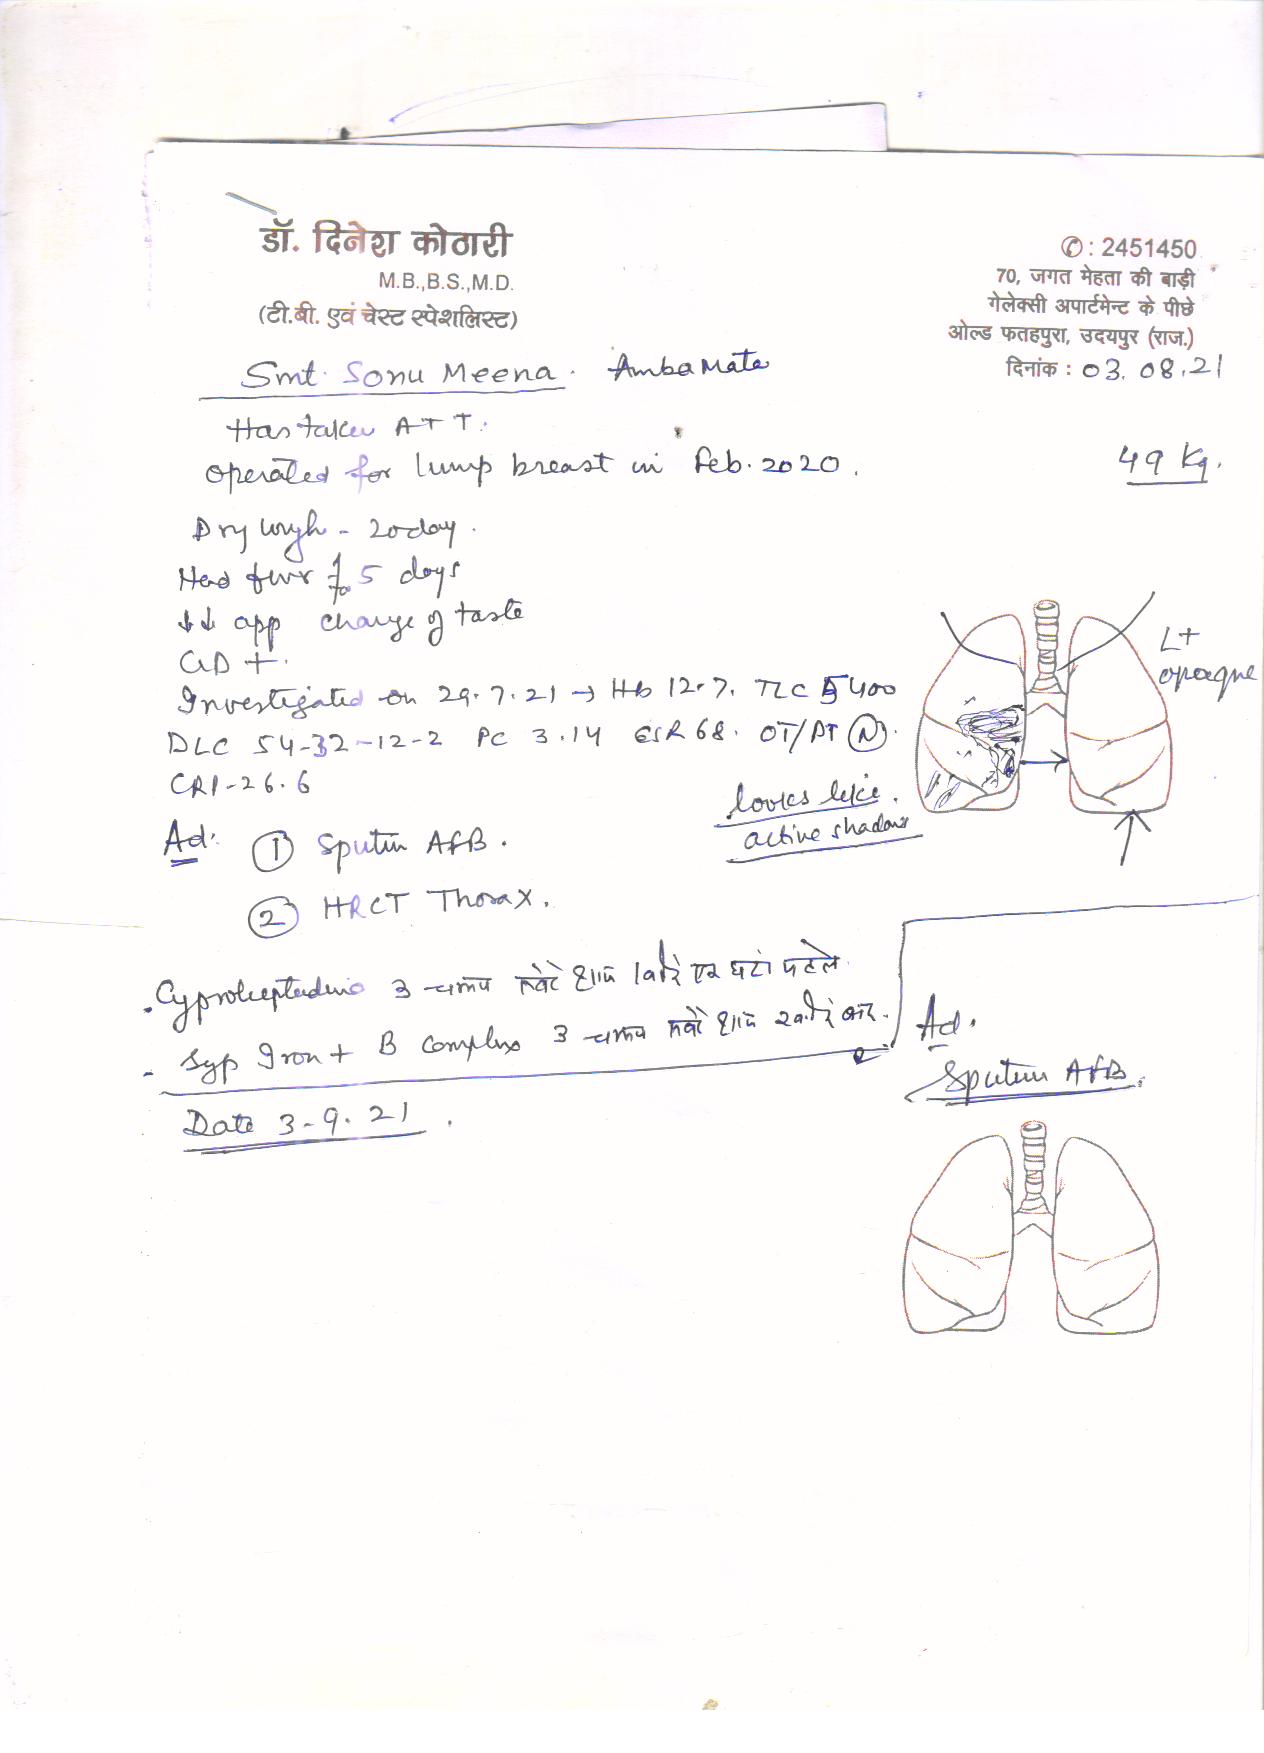 डॉ. दिनेश कोठारी
M.B.,B.S.,M.D.
(टी.बी. एवं चेस्ट स्पेशलिस्ट)
✆ : 2451450
70, जगत मेहता की बाड़ी
गेलेक्सी अपार्टमेन्ट के पीछे
ओल्ड फतहपुरा, उदयपुर (राज.)
दिनांक : 03.08.21
Smt. Sonu Meena. Amba Mata
Has taken ATT.
operated for lump breast in Feb.2020.
49 Kg.
Dry cough - 20 day.
Had fever for 5 days
↓↓ app change of taste
GD +.
Investigated on 29.7.21 → Hb 12.7. TLC 5400
DLC 54-32-12-2 PC 3.14 ESR 68. OT/PT (N).
CRP-26.6
L+
opaque
looks like.
active shadows
Ad:
① Sputum AFB.
② HRCT Thorax.
. Cyproheptadine 3 चम्मच सवेरे शाम एक घंटा पहले
- Syp Iron + B Complex 3 चम्मच सवेरे शाम बाद.
Ad.
Sputum AFB.
Date 3-9.21.